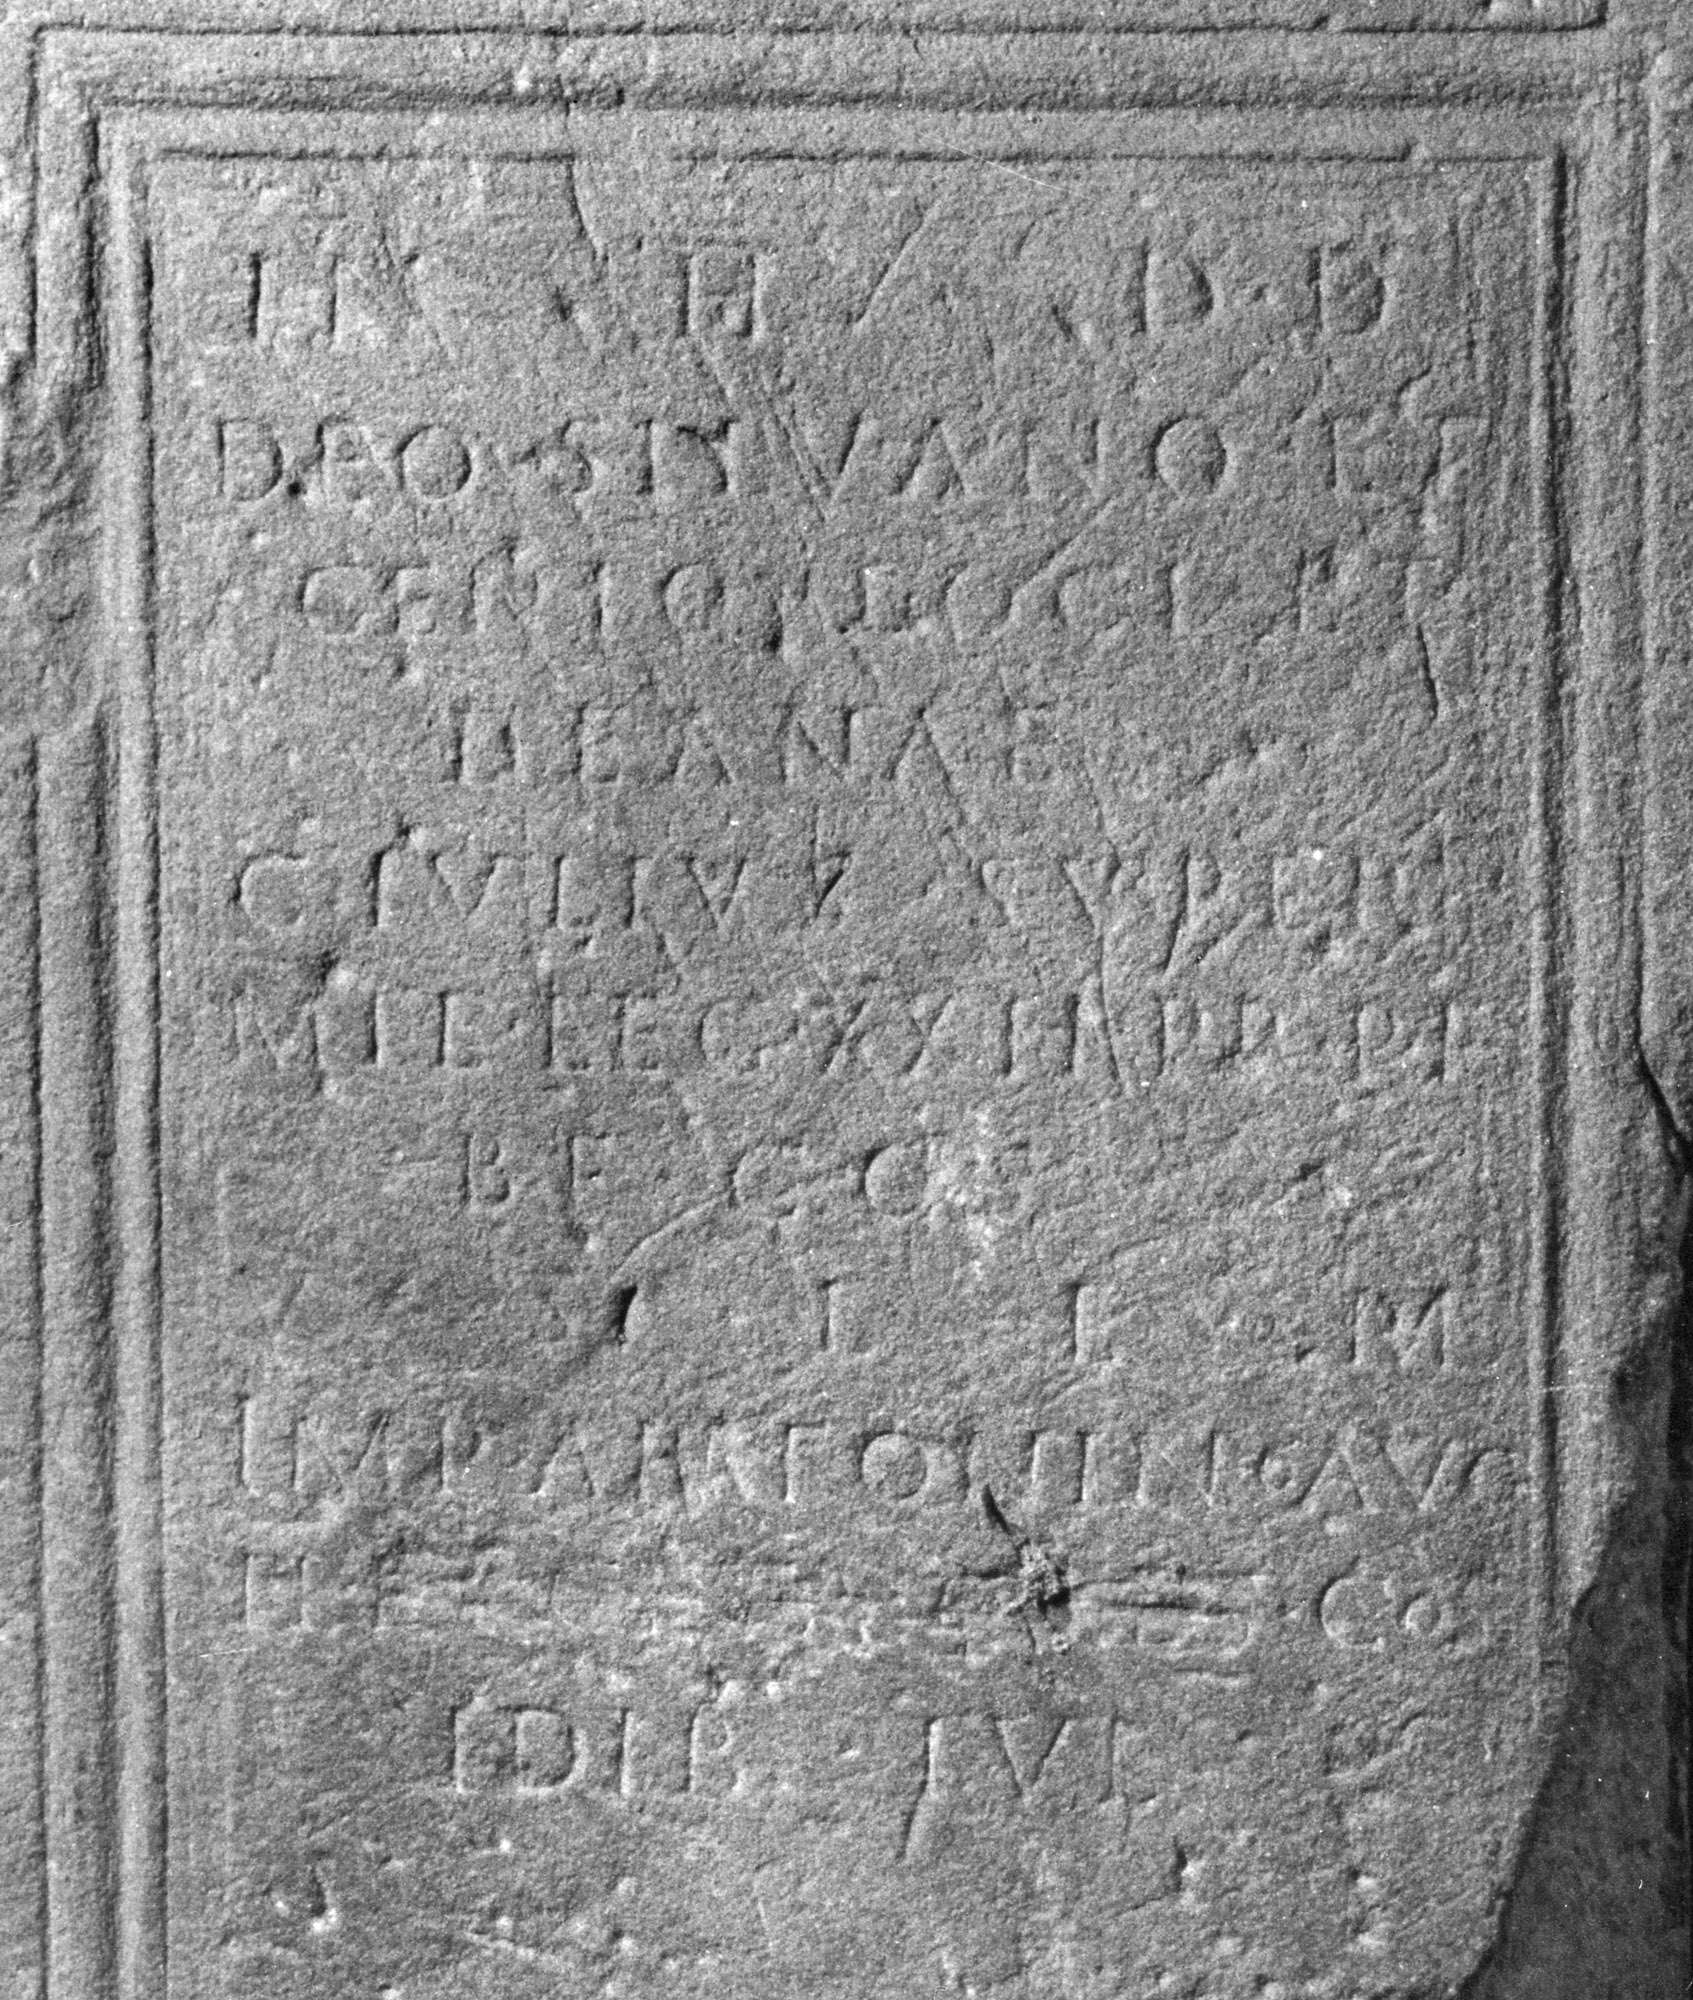 IN H D D
DEO SILVANO ET
GENIO LOCI ET
DEANAE
C IVLIVS
MILES LEG XXII PR P F
BF COS
V S L L M
IMP ANTONINO AVG
II ET COS
IDIB IVL